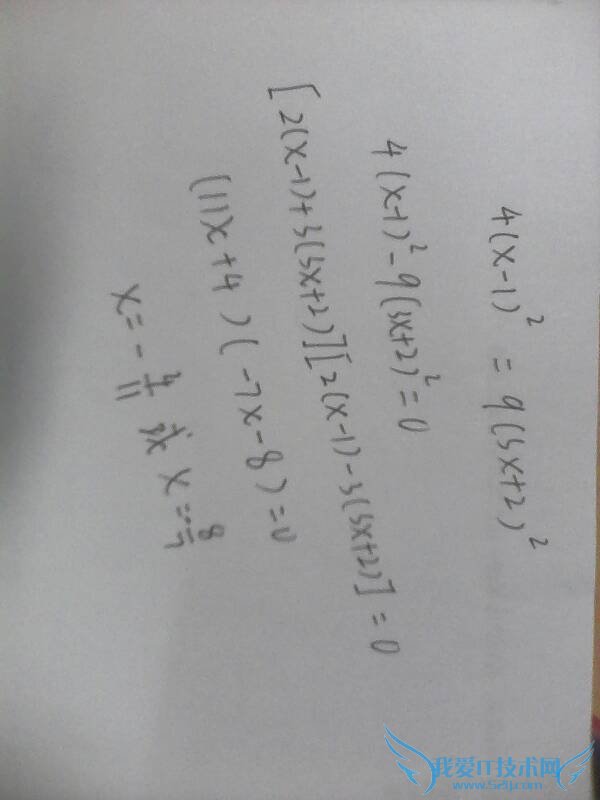 4(x-1)² = 9(3x+2)²
4(x-1)² - 9(3x+2)² = 0
[2(x-1)+3(3x+2)][2(x-1)-3(3x+2)] = 0
(11x+4)(-7x-8) = 0
x = -4/11 或 x = -8/7
我爱IT技术网
www.52ij.com